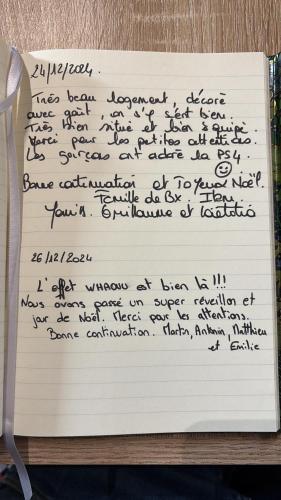 24/12/2024.
Très beau logement, décoré
avec goût, on s'y sent bien.
Très bien situé et bien équipé.
Merci pour les petites attentions.
Les garçons ont adoré la PS4.
Bonne continuation et Joyeux Noël.
Famille de Bx.
Yanis. Guillaume et Laëtitia
26/12/2024
L'effet WHAOUU est bien là !!!
Nous avons passé un super réveillon et
jour de Noël. Merci pour les attentions.
Bonne continuation. Martin, Antonin, Matthieu
et Emilie